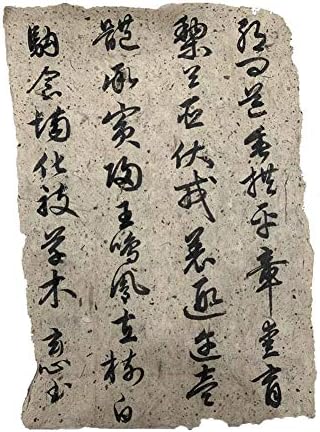 朝問道垂拱平章愛育
黎首臣伏戎羌遐邇壹
體率賓歸王鳴鳳在樹白
駒食場化被草木